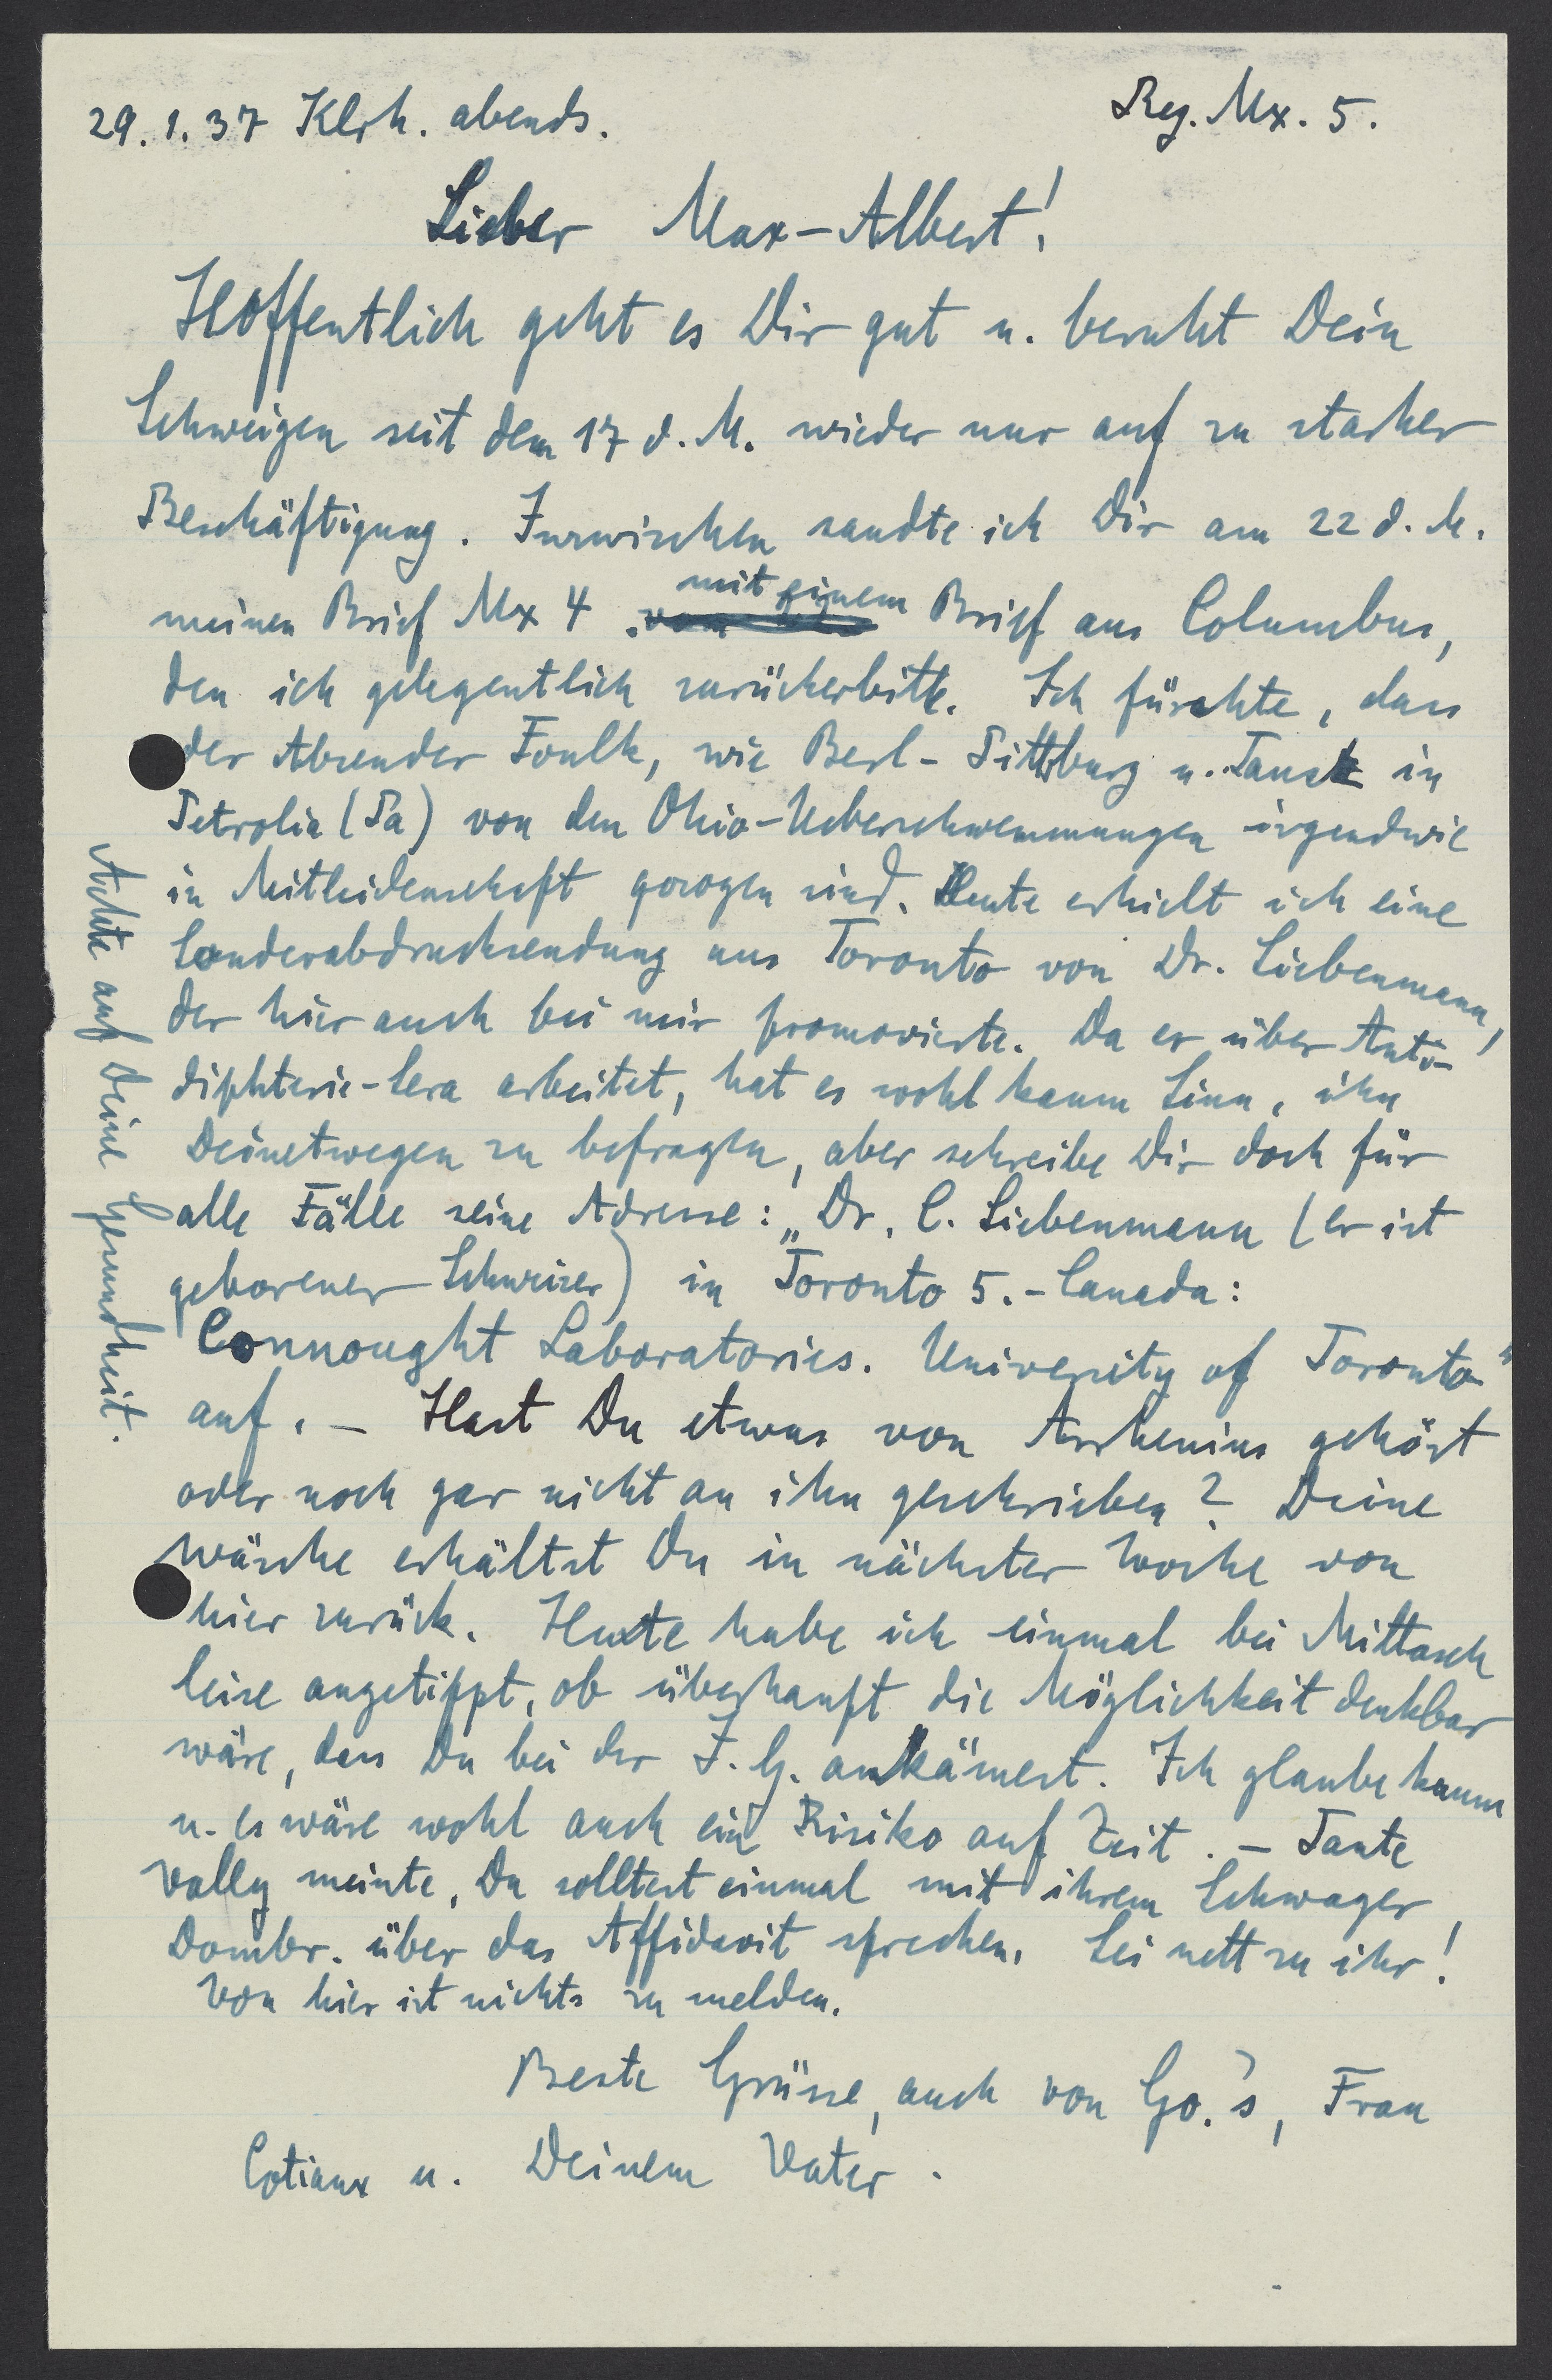 29.1.37 Klrh. abends.
Reg. Mx. 5.
Lieber Max-Albert!
Hoffentlich geht es Dir gut u. beruht Dein
Schweigen seit dem 17 d. M. wieder nur auf zu starker
Beschäftigung. Inzwischen sandte ich Dir am 22 d. M.
meinen Brief Mx 4 mit einem Brief aus Columbus,
den ich gelegentlich zurückerbitte. Ich fürchte, dass
der Absender Foulk, wie Berl-Pittsburg u. Tausk in
Petrolia (Pa) von den Ohio-Ueberschwemmungen irgendwie
in Mitleidenschaft gezogen sind. Heute erhielt ich eine
Sonderabdrucksendung aus Toronto von Dr. Siebenmann,
der hier auch bei mir promovierte. Da er über Anti-
diphterie-Sera arbeitet, hat es wohl kaum Sinn, ihn
Deinetwegen zu befragen, aber schreibe Dir doch für
alle Fälle seine Adresse: „Dr. C. Siebenmann (er ist
geborener Schweizer) in Toronto 5.-Canada:
Connought Laboratories. University of Toronto"
auf. — Hast Du etwas von Arrhenius gehört
oder noch gar nicht an ihn geschrieben? Deine
Wäsche erhältst Du in nächster Woche von
hier zurück. Heute habe ich einmal bei Mittasch
leise angetippt, ob überhaupt die Möglichkeit denkbar
wäre, dass Du bei der I. G. ankämest. Ich glaube kaum
u. es wäre wohl auch ein Risiko auf Zeit. — Tante
Vally meinte, Du solltest einmal mit ihrem Schwager
Dombr. über das Affidavit sprechen. Sei nett zu ihr!
Von hier ist nichts zu melden.
Beste Grüsse, auch von Go.'s, Frau
Cotiaux u. Deinem Vater.
Achte auf Deine Gesundheit.